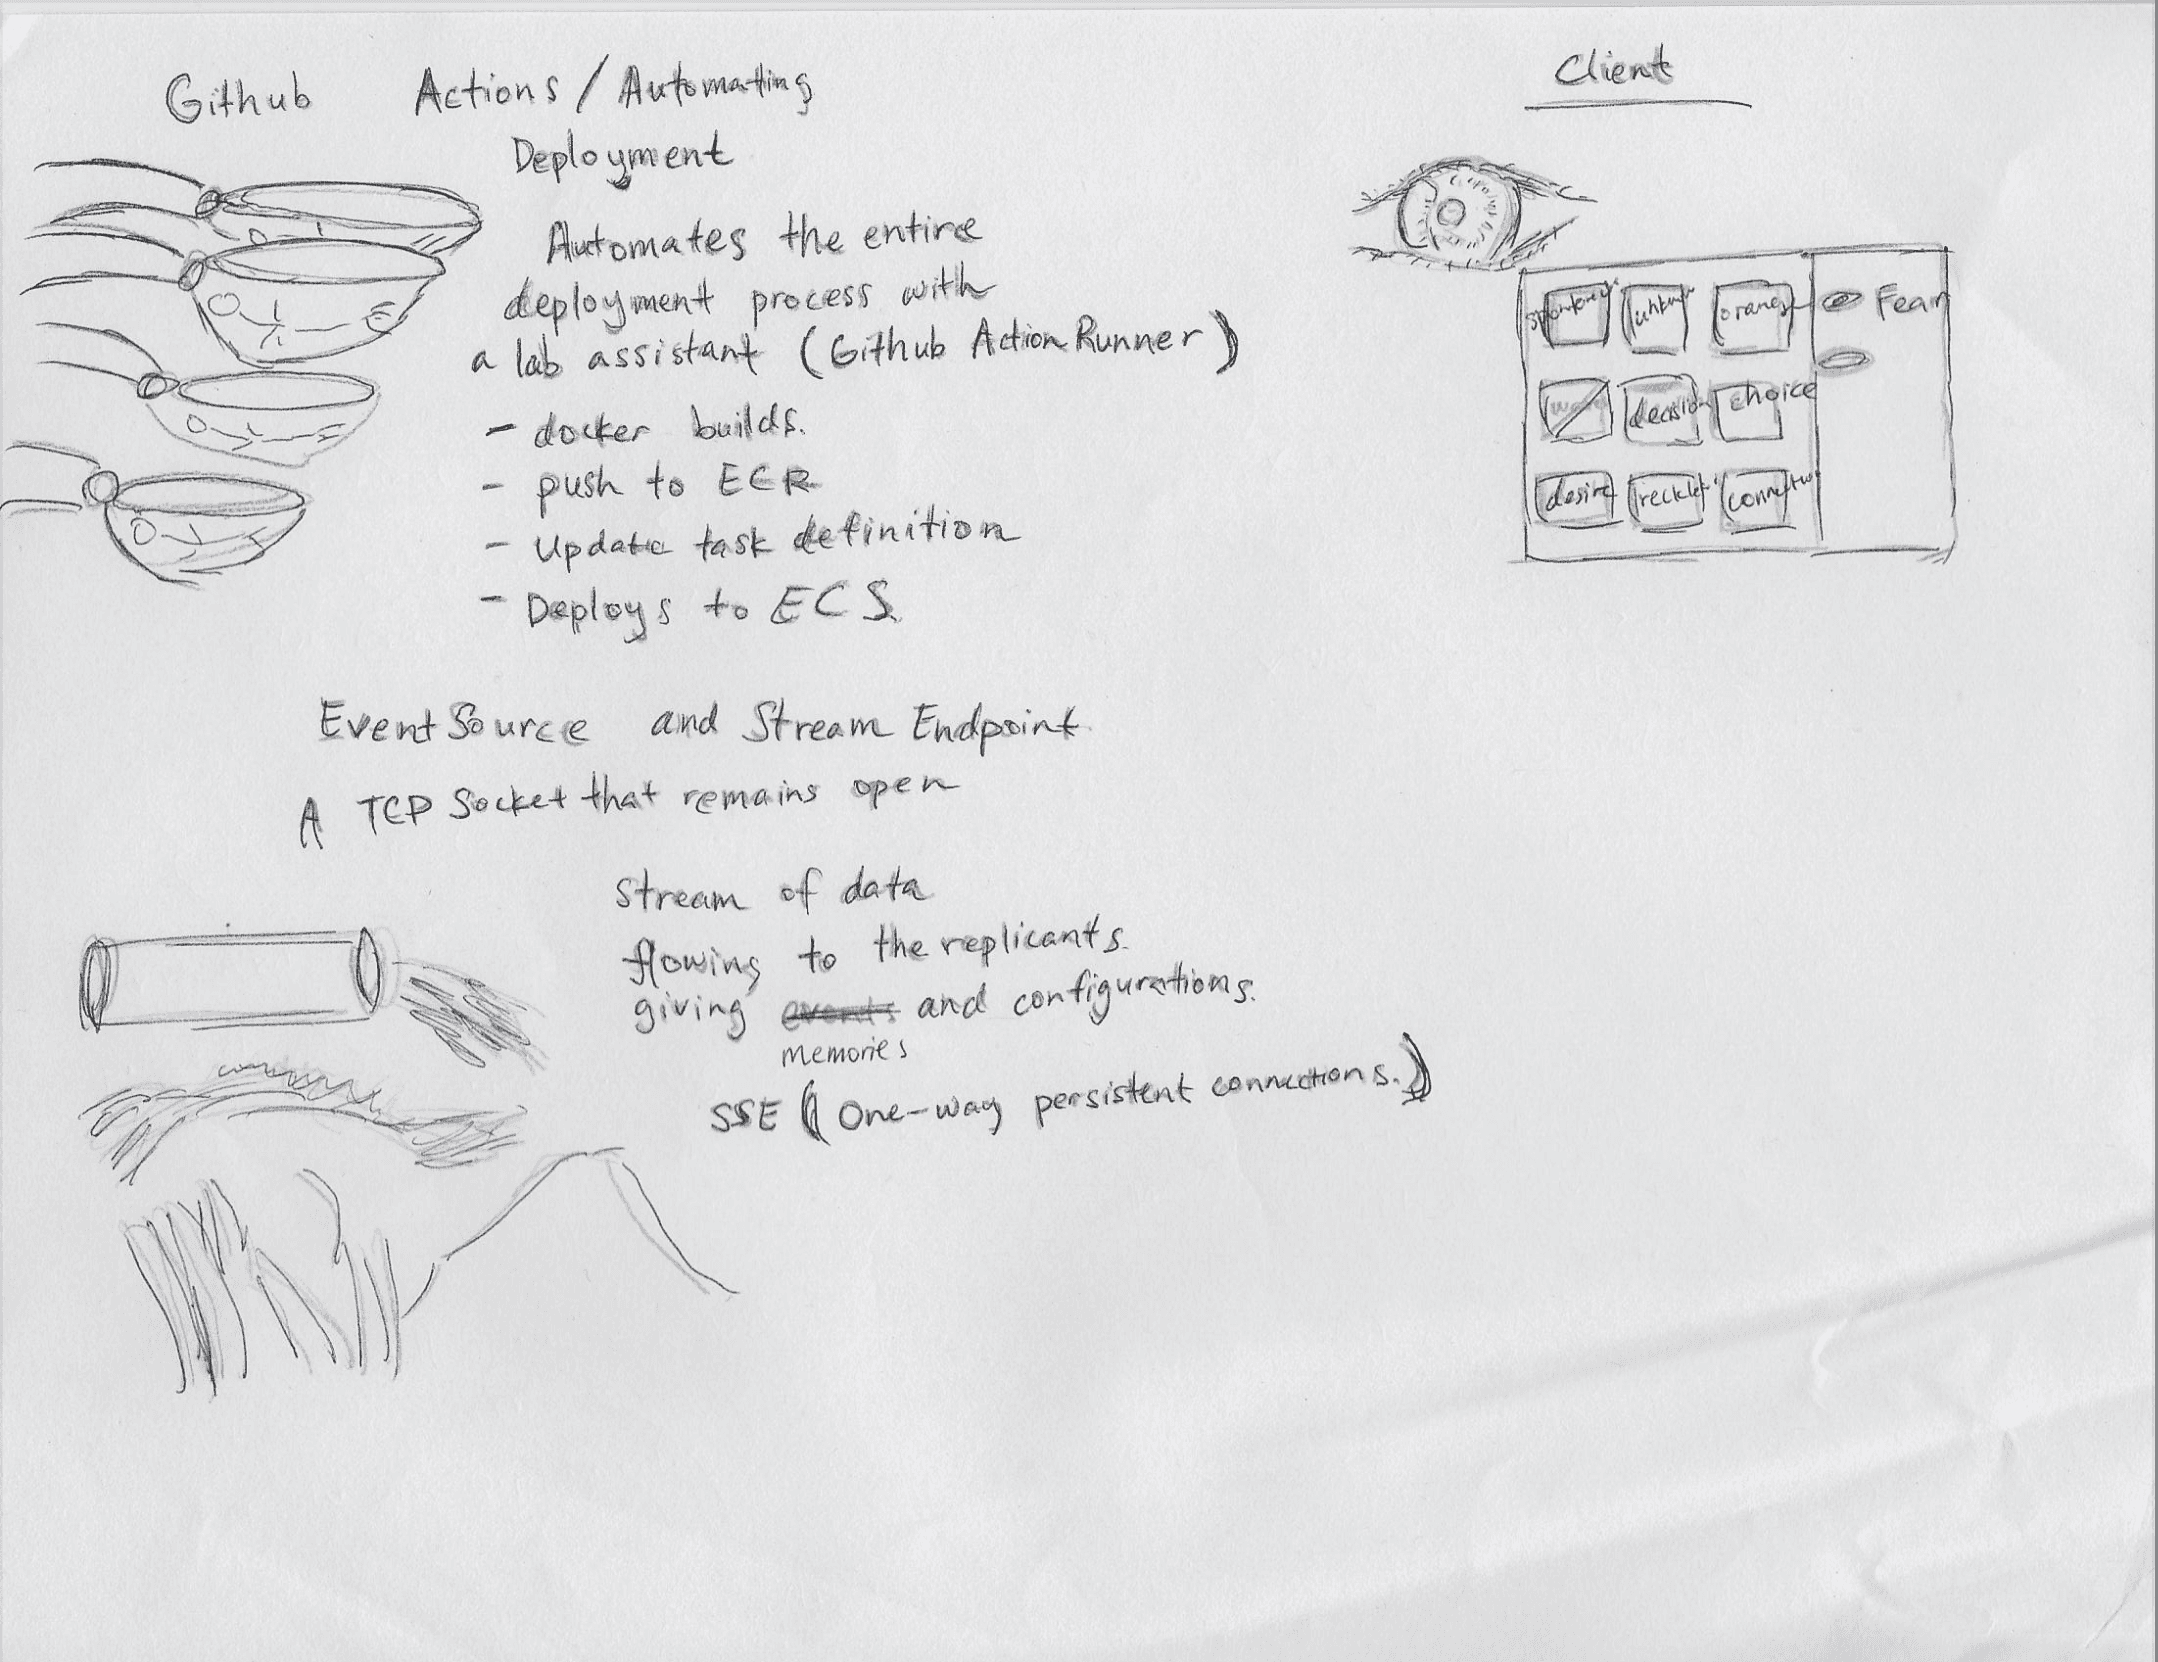 Github Actions / Automating
Deployment
Automates the entire
deployment process with
a lab assistant (Github Action Runner)
- docker builds.
- push to ECR
- Update task definition
- Deploys to ECS.
EventSource and Stream Endpoint
A TCP Socket that remains open
Stream of data
flowing to the replicants.
giving events and configurations.
memories
SSE (One-way persistent connections.)
Client
Fear
decision choice
desire